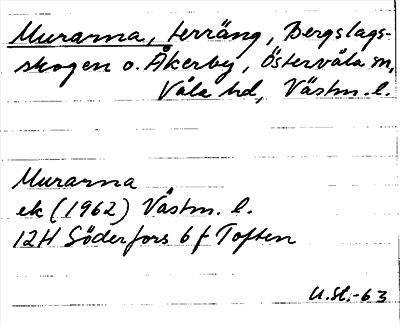 Murarna, terräng, Bergslags-
skogen o. Åkerby, Östervåla sn,
Våla hd, Västm. l.
Murarna
ek (1962) Västm. l.
12H Söderfors 6 f Toften
U.St.-63